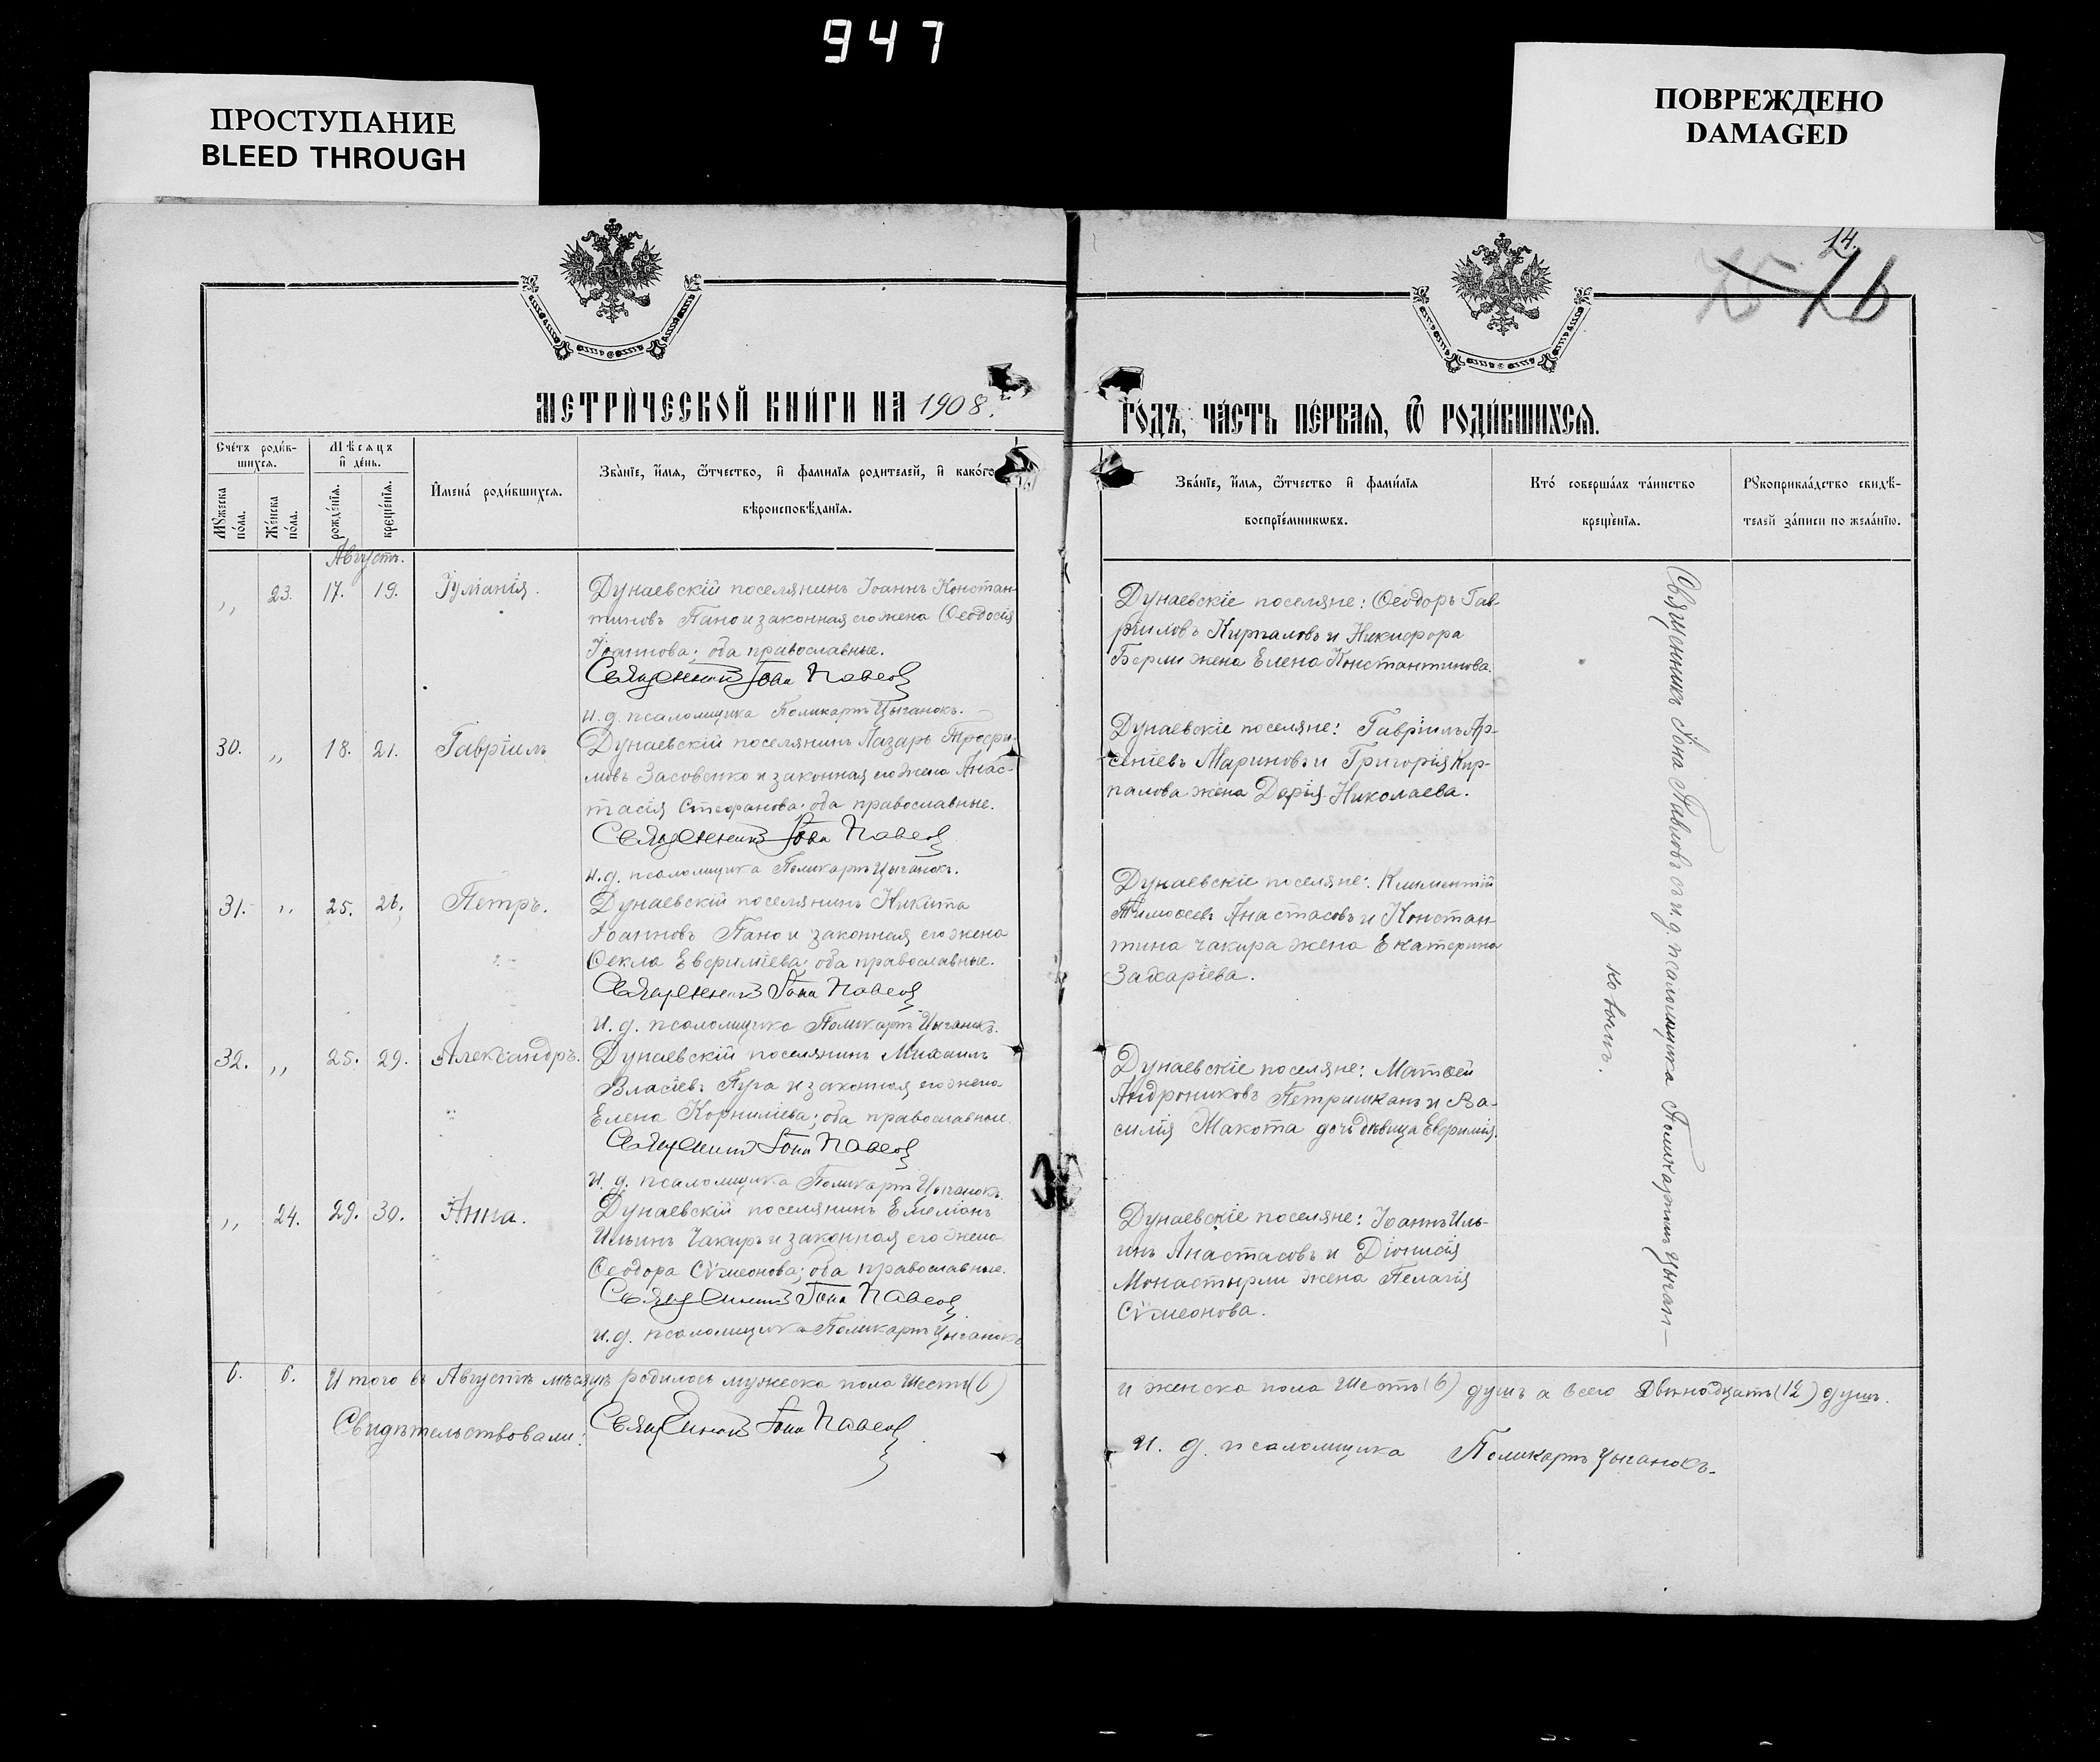 947
ПРОСТУПАНИЕ
BLEED THROUGH
ПОВРЕЖДЕНО
DAMAGED
14.
76
МЕТРИ́ЧЕСКОЙ КНИ́ГИ НА 1908.
ГО́ДЪ, ЧА́СТЬ ПЕ́РВАѦ, Ѿ РОДИ́ВШИХСѦ.
Сче́тъ роди́в-
шихсѧ.
Мѣсѧцъ
и҆ де́нь.
Мꙋжеска
по́ла.
Же́нска
по́ла.
рожде́нїѧ.
креще́нїѧ.
И҆мена́ роди́вшихсѧ.
Зва́нїе, и҆́мѧ, ѻ҆́тчество, и҆ фамилїѧ родителей, и҆ како́го
вѣроисповѣ́данїѧ.
Зва́нїе, и҆́мѧ, ѻ҆́тчество и҆ фами́лїѧ
воспрїе́мникѡвъ.
Кто́ соверша́лъ та́инство
креще́нїѧ.
Рꙋкоприкла́дство свидѣ́-
телей за́писи по жела́нїю.
Августъ.
,, 23. 17. 19. Іулианія.
Дунаевскій поселянинъ Іоаннъ Констан-
тиновъ Пано и законная его жена Ѳеодосія
Іоаннова; оба православные.
Священникъ Іона Павловъ
и. д. псаломщика Поликарпъ Цыганокъ.
Дунаевскіе поселяне: Ѳеодоръ Гав-
рииловъ Кирпаловъ и Никифора
Берли жена Елена Константинова.
30. ,, 18. 21. Гавріилъ
Дунаевскій поселянинъ Лазарь Трофи-
мовъ Засовенко и законная его жена Анас-
тасія Стефанова; оба православные.
Священникъ Іона Павловъ
и. д. псаломщика Поликарпъ Цыганокъ.
Дунаевскіе поселяне: Гавріилъ Ар-
сеніевъ Мариновъ и Григорія Кир-
палова жена Дарія Николаева.
31. ,, 25. 26. Петръ.
Дунаевскій поселянинъ Никита
Іоанновъ Пано и законная его жена
Ѳекла Евфиміева; оба православные.
Священникъ Іона Павловъ
и. д. псаломщика Поликарпъ Цыганокъ.
Дунаевскіе поселяне: Климентій
Тимоѳеевъ Анастасовъ и Констан-
тина Чакира жена Екатерина
Захаріева.
32. ,, 25. 29. Александръ.
Дунаевскій поселянинъ Михаилъ
Власіевъ Пуга и законная его жена
Елена Корниліева; оба православные.
Священникъ Іона Павловъ
и. д. псаломщика Поликарпъ Цыганокъ.
Дунаевскіе поселяне: Матѳей
Андрониковъ Петришканъ и Ва-
силія Макота дочь дѣвица Евфимія.
,, 24. 29. 30. Анна.
Дунаевскій поселянинъ Емеліанъ
Ильинъ Чакиръ и законная его жена
Ѳеодора Сѵмеонова; оба православные.
Священникъ Іона Павловъ
и. д. псаломщика Поликарпъ Цыганокъ
Дунаевскіе поселяне: Іоаннъ Иль-
инъ Анастасовъ и Діонисія
Монастырли жена Пелагія
Сѵмеонова.
Священникъ Іона Павловъ съ и. д. псаломщика Поликарпомъ Цыган-
ковымъ.
6. 6. Итого въ Августѣ мѣсяцѣ родилось мужеска пола шесть (6)
и женска пола шесть (6) душъ а всего двѣнадцать (12) душъ.
Свидѣтельствовали: Священникъ Іона Павловъ
и. д. псаломщика Поликарпъ Цыганокъ.